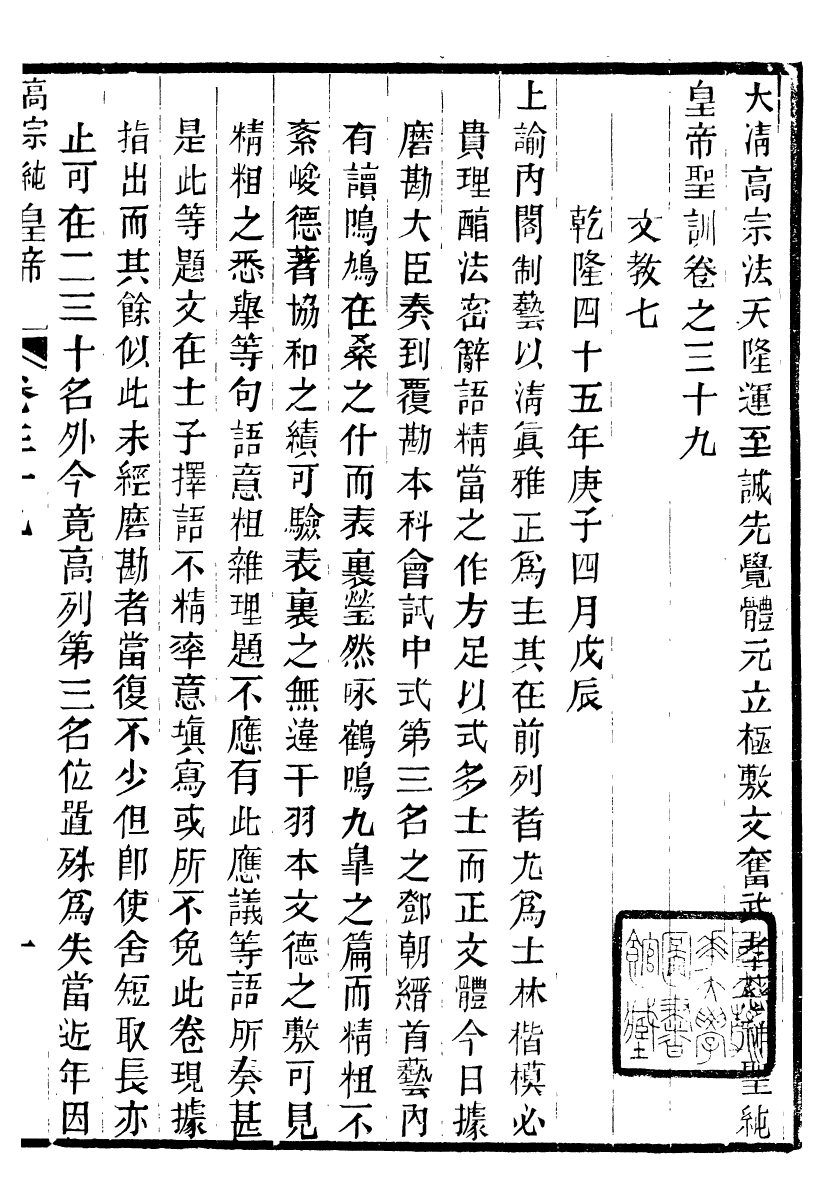 大清高宗法天隆運至誠先覺體元立極敷文奮武孝慈神聖純
皇帝聖訓卷之三十九
文教七
乾隆四十五年庚子四月戊辰
上諭內閣制藝以淸眞雅正爲主其在前列者尤爲士林楷模必
貴理醇法密辭語精當之作方足以式多士而正文體今日據
磨勘大臣奏到覆勘本科會試中式第三名之鄧朝縉首藝內
有讀鳲鳩在桑之什而表裏瑩然咏鶴鳴九臯之篇而精粗不
紊峻德著協和之績可驗表裏之無違干羽本文德之敷可見
精粗之悉舉等句語意粗雜理題不應有此應議等語所奏甚
是此等題文在士子擇語不精率意塡寫或所不免此卷現據
指出而其餘似此未經磨勘者當復不少但卽使舍短取長亦
止可在二三十名外今竟高列第三名位置殊爲失當近年因
高宗純皇帝 卷三十九 一